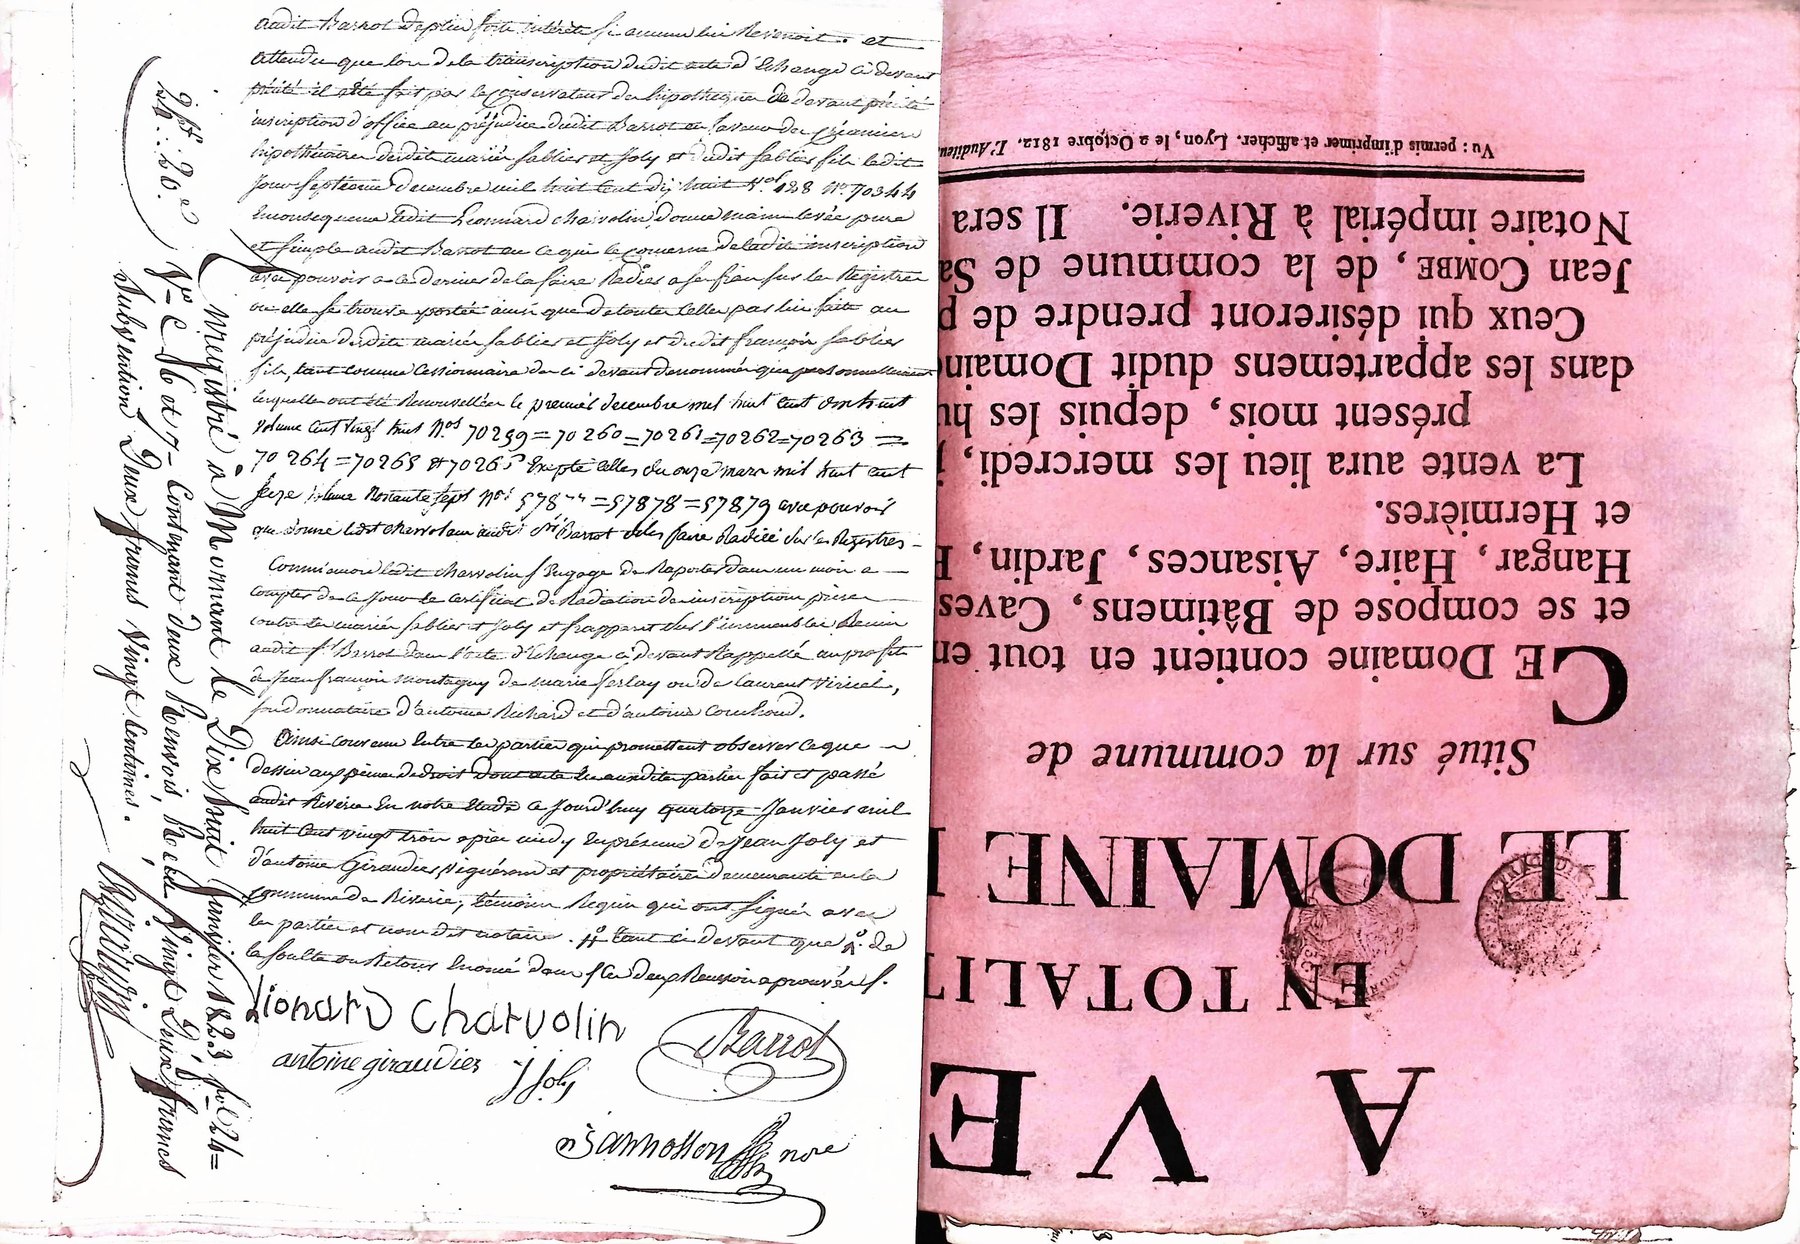 audit Barrot de plus forte intérêts si aucuns lui Revenoit. et
attendu que lors de la transcription dudit acte d'Echange ci devant
précité il a été fait par le Conservateur des hipotheques de devant précité
inscription d'office au préjudice dudit Barrot en faveur des créanciers
hipothécaires desdits mariés sablier et Joly et dudit sablier fils ledit
jour septième decembre mil huit cent dix huit Vol 128 N° 70344
En consequence ledit Lionnard charvolin donne main levée pure
et simple audit Barrot en ce qui le concerne de ladite inscription
avec pouvoir a ce dernier de la faire Radier a ses frais sur les Registres
ou elle se trouve portée ainsi que de toutes celles par lui faite au
préjudice desdits mariés sablier et Joly et dudit françois sablier
fils, tant comme Cessionnaire de ci devant denommés que personnellement
lesquelles ont été Renouvellées le premier decembre mil huit cent dix huit
volume Cent vingt huit Nos 70259=70260=70261=70262=70263=
70264=70265 et 70266 Excepté celles du onze mars mil huit cent
seize volume nonante sept Nos =57878=57879 avec pouvoir
que donne ledit charvolin audit Sr Barrot de les faire Radier sur les Registres
Comme encore ledit charvolin s'Engage de Raporter dans un mois a
compter de ce jour le certificat de Radiation des inscriptions prises
contre les mariés sablier et Joly et frappant sur l'immeuble Remis
audit Sr Barrot dans l'acte d'Echange ci devant Rappellé au profit
de Jean françois montagny de marie ferlay ou de laurent Viricel,
son donnataire d'antoine Richard et d'antoine Couchoud.
Ainsi convenu Entre les parties qui promettent observer ce que
dessus aux peines de droit dont acte les auxdites parties fait et passé
audit Riverie En notre Etude ce jourd'huy quatorze Janvier mil
huit Cent vingt trois apres midy En présence de Jean Joly et
d'antoine Giraudier vigneron et propriétaire demeurants en la
commune de Riverie, témoins Requis qui ont signés avec
les parties et nous dit notaire. tant ci devant que de
la soulte ou Retour Enoncé dans les deux Renvois approuvés
Lionard Charvolin
Barrot
antoine giraudier
J Joly
Bannosson nore
Enregistré à Mornant le Dix huit Janvier 1823 fol 24=
Vo C M et 7= Contenant deux Renvois, Reçu Vingt Deux francs
Subvention Deux francs Vingt Centimes.
A VE
EN TOTALIT
LE DOMAINE
Situé sur la commune de
CE Domaine contient en tout en
et se compose de Bâtimens, Caves
Hangar, Haire, Aisances, Jardin,
et Hermières.
La vente aura lieu les mercredi,
présent mois, depuis les hu
dans les appartemens dudit Domaine
Ceux qui désireront prendre de p
Jean COMBE, de la commune de Sa
Notaire impérial à Riverie. Il sera
Vu : permis d'imprimer et afficher. Lyon, le 2 Octobre 1812. L'Auditeur